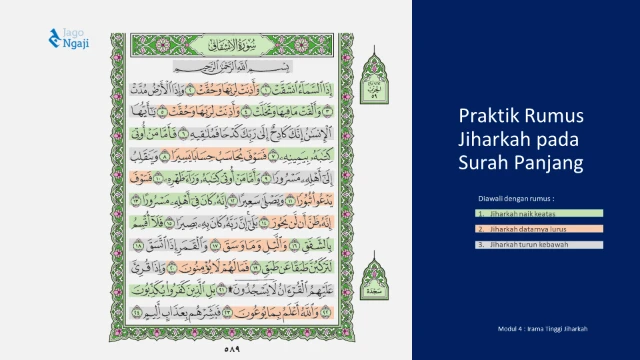 Jago
Ngaji
سُورَةُ الانشِقَاقِ
بِسْمِ اللَّهِ الرَّحْمَٰنِ الرَّحِيمِ
إِذَا السَّمَاءُ انشَقَّتْ ١ وَأَذِنَتْ لِرَبِّهَا وَحُقَّتْ ٢ وَإِذَا الْأَرْضُ مُدَّتْ
٣ وَأَلْقَتْ مَا فِيهَا وَتَخَلَّتْ ٤ وَأَذِنَتْ لِرَبِّهَا وَحُقَّتْ ٥ يَٰأَيُّهَا
الْإِنسَٰنُ إِنَّكَ كَادِحٌ إِلَىٰ رَبِّكَ كَدْحًا فَمُلَٰقِيهِ ٦ فَأَمَّا مَنْ أُوتِيَ
كِتَٰبَهُ بِيَمِينِهِ ٧ فَسَوْفَ يُحَاسَبُ حِسَابًا يَسِيرًا ٨ وَيَنقَلِبُ
إِلَىٰ أَهْلِهِ مَسْرُورًا ٩ وَأَمَّا مَنْ أُوتِيَ كِتَٰبَهُ وَرَاءَ ظَهْرِهِ ١٠ فَسَوْفَ
يَدْعُوا ثُبُورًا ١١ وَيَصْلَىٰ سَعِيرًا ١٢ إِنَّهُ كَانَ فِي أَهْلِهِ مَسْرُورًا ١٣
إِنَّهُ ظَنَّ أَن لَّن يَحُورَ ١٤ بَلَىٰ إِنَّ رَبَّهُ كَانَ بِهِ بَصِيرًا ١٥ فَلَا أُقْسِمُ
بِالشَّفَقِ ١٦ وَاللَّيْلِ وَمَا وَسَقَ ١٧ وَالْقَمَرِ إِذَا اتَّسَقَ ١٨
لَتَرْكَبُنَّ طَبَقًا عَن طَبَقٍ ١٩ فَمَا لَهُمْ لَا يُؤْمِنُونَ ٢٠ وَإِذَا قُرِئَ
عَلَيْهِمُ الْقُرْءَانُ لَا يَسْجُدُونَ ٢١ بَلِ الَّذِينَ كَفَرُوا يُكَذِّبُونَ
٢٢ وَاللَّهُ أَعْلَمُ بِمَا يُوعُونَ ٢٣ فَبَشِّرْهُم بِعَذَابٍ أَلِيمٍ ٢٤
٥٩
سَجْدَة
٥٨٩
Praktik Rumus
Jiharkah pada
Surah Panjang
Diawali dengan rumus :
1. Jiharkah naik keatas
2. Jiharkah datarnya lurus
3. Jiharkah turun kebawah
Modul 4 : Irama Tinggi Jiharkah